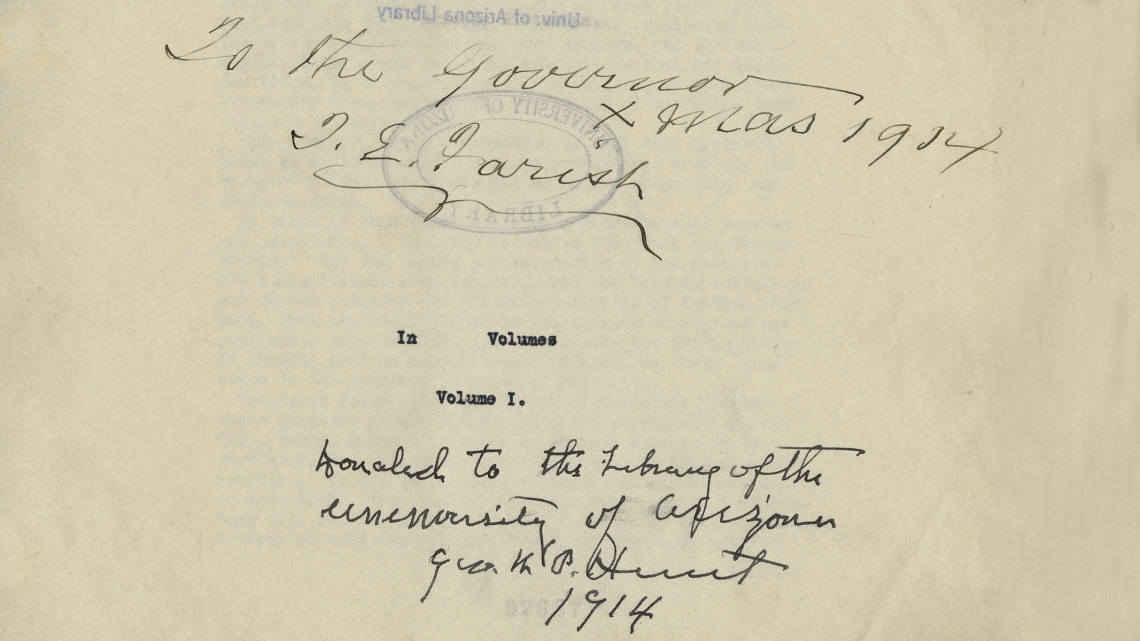 Univ. of Arizona Library
To the Governor
X mas 1914
T. E. Farish
UNIVERSITY OF ARIZONA
LIBRARY
In Volumes
Volume I.
Donated to the Library of the
University of Arizona
Geo. W P. Hunt
1914